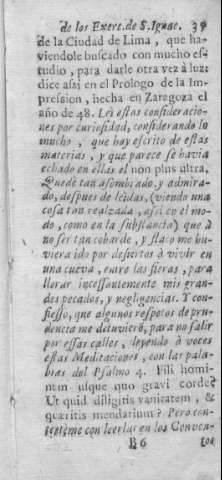 de los Exerc. de S. Ignac. 39
de la Ciudad de Lima, que ha-
viendole buscado con mucho es-
tudio, para darle otra vez à luz:
dice assi en el Prologo de la Im-
pression, hecha en Zaragoza el
año de 48. Leì estas consideracio-
nes por curiosidad, considerando lo
mucho, que hay escrito de estas
materias, y que parece se havia
echado en ellas el non plus ultra.
Quedè tan asombrado, y admira-
do, despues de leìdas, (viendo una
cosa tan realzada, assi en el mo-
do, como en la substancia) que à
no ser tan cobarde, y flaco me hu-
viera ido por desiertos à vivir en
una cueva, entre las fieras, para
llorar incessantemente mis gran-
des pecados, y negligencias. Y con-
fiesso, que algunos respetos de pru-
dencia me detuvierõ, para no salir
por essas calles, leyendo à voces
estas Meditaciones, con las pala-
bras del Psalmo 4. Filii homi-
num usque quo gravi corde?
Ut quid diligitis vanitatem, &
quæritis mendacium? Pero con-
tentème con leerlas en los Conven-
B6 tos